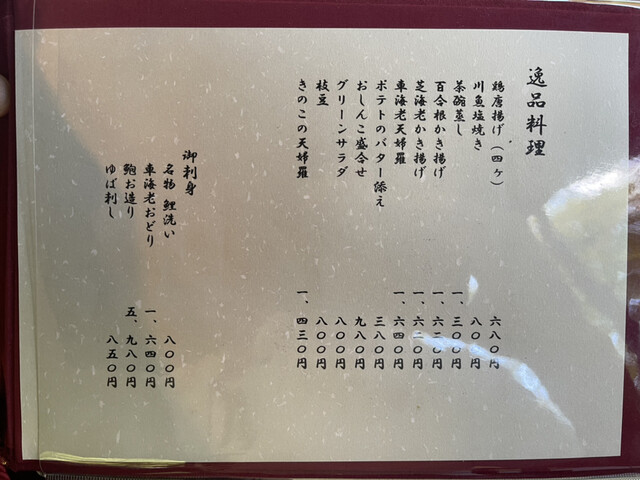 逸品料理
鶏唐揚げ（四ヶ） 六八〇円
川魚塩焼き 八〇〇円
茶碗蒸し 一、三〇〇円
百合根かき揚げ 一、六二〇円
芝海老かき揚げ 一、六二〇円
車海老天婦羅 一、六四〇円
ポテトのバター添え 三八〇円
おしんこ盛合せ 九八〇円
グリーンサラダ 八〇〇円
枝豆 八〇〇円
きのこの天婦羅 一、四三〇円
御刺身
名物 鯉洗い 八〇〇円
車海老おどり 一、六四〇円
鮑お造り 五、九八〇円
ゆば刺し 八五〇円